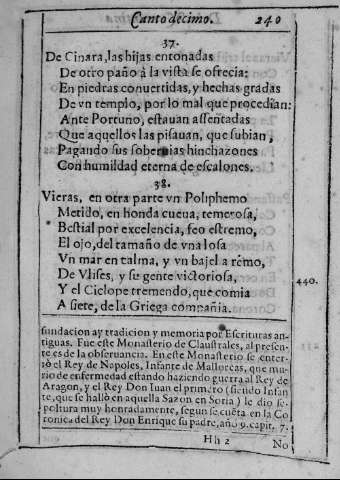 Canto decimo. 240
37.
De Cinara, las hijas entonadas
De otro paño à la vista se ofrecia:
En piedras conuertidas, y hechas gradas
De vn templo, por lo mal que procedian:
Ante Portuno, estauan assentadas
Que aquellos las pisauan, que subian,
Pagando sus soberuias hinchazones
Con humildad eterna de escalones.
38.
Vieras, en otra parte vn Poliphemo
Metido, en honda cueua, temerosa,
Bestial por excelencia, feo estremo,
El ojo, del tamaño de vna losa
Vn mar en talma, y vn bajel a rèmo,
De Vlises, y su gente victoriosa,
Y el Ciclope tremendo, que comia
A siete, de la Griega compañia.
440.
fundacion ay tradicion y memoria por Escrituras an-
tiguas. Fue este Monasterio de Claustrales, al presen-
te es de la obseruancia. En este Monasterio se enter-
rò el Rey de Napoles, Infante de Mallorcas, que mu-
rio de enfermedad estando haziendo guerra al Rey de
Aragon, y el Rey Don Iuan el primero (siendo Infan-
te, que se hallò en aquella Sazon en Soria) le dio se-
poltura muy honradamente, segun se cuẽta en la Co
ronica del Rey Don Enrique su padre, año 9. capit. 7.
Hh 2 No